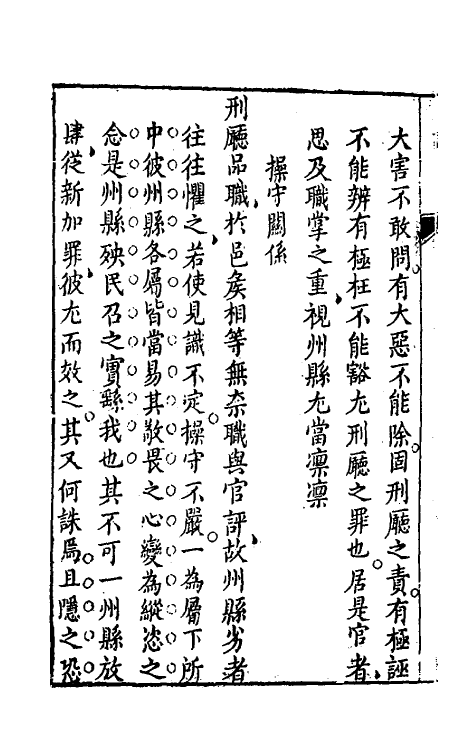 大害不敢問有大惡不能除固刑廳之責有極誣
不能辨有極枉不能豁尢刑廳之罪也居是官者
思及職掌之重視州縣尢當凛凛
操守關係
刑廳品職於邑矦相等無柰職與官評故州縣劣者
往往懼之若使見識不定操守不嚴一為屬下所
中彼州縣各屬皆當易其敬畏之心變為縱恣之
念是州縣殃民召之實繇我也其不可一州縣放
肆從新加罪彼尢而效之其又何誅焉且隱之恐